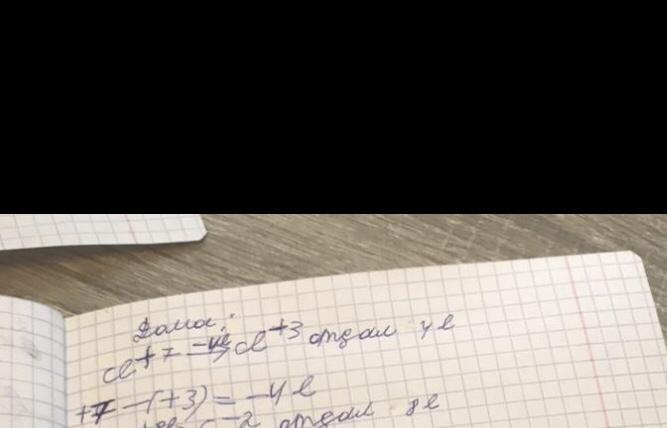 Дома:
Cl⁺⁷ —⁻⁴ᵉ→ Cl⁺³ отдал 4 e
+7 -(+3) = -4 e
⁻² отдал 8 e